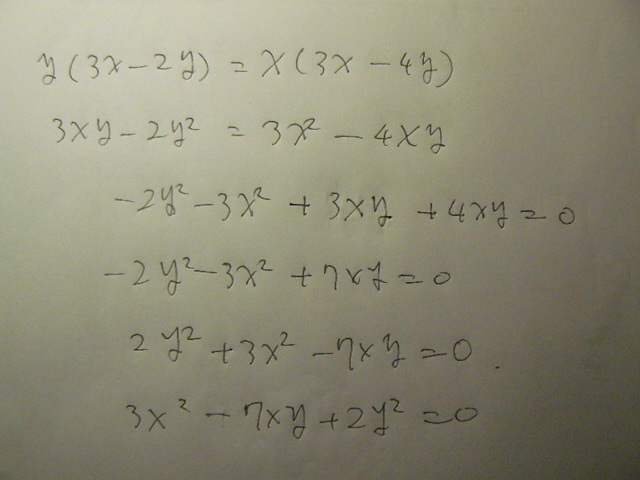 y(3x-2y) = x(3x-4y)
3xy-2y² = 3x² - 4xy
-2y²-3x² + 3xy + 4xy = 0
-2y²-3x² + 7xy = 0
2y² + 3x² - 7xy = 0.
3x² - 7xy + 2y² = 0